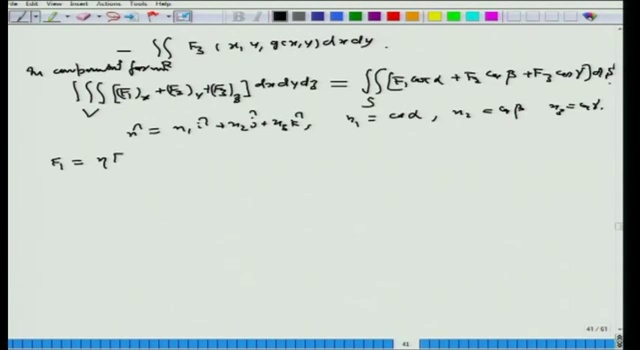 File Edit View Insert Actions Tools Help
− ∬_R F₃ (x, y, g(x,y)) dx dy.
In component form
∭_V [(F₁)_x + (F₂)_y + (F₃)_z] dx dy dz = ∬_S [F₁ cos α + F₂ cos β + F₃ cos γ] dS
n̂ = n₁ î + n₂ ĵ + n₃ k̂, n₁ = cos α, n₂ = cos β n₃ = cos γ.
F₁ = η Γ
41 / 61
41